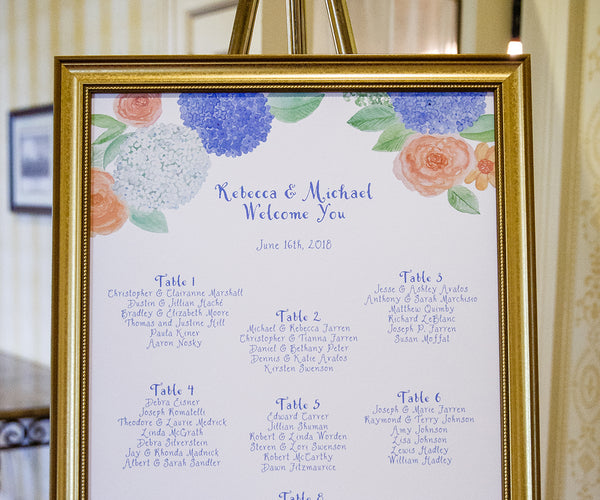 Rebecca & Michael
Welcome You
June 16th, 2018
Table 1
Christopher & Clairanne Marshall
Dustin & Jillian Haché
Bradley & Elizabeth Moore
Thomas and Justine Hill
Paula Kiner
Aaron Nosky
Table 2
Michael & Rebecca Farren
Christopher & Tianna Farren
Daniel & Bethany Peter
Dennis & Katie Avalos
Kirsten Swenson
Table 3
Jesse & Ashley Avalos
Anthony & Sarah Marchisio
Matthew Quimby
Richard LeBlanc
Joseph P. Farren
Susan Moffat
Table 4
Debra Eisner
Joseph Romatelli
Theodore & Laurie Medrick
Linda McGrath
Debra Silverstein
Jay & Rhonda Madnick
Albert & Sarah Sandler
Table 5
Edward Carver
Jillian Shuman
Robert & Linda Worden
Steren & Lori Swenson
Robert McCarthy
Dawn Fitzmaurice
Table 6
Joseph & Marie Farren
Raymond & Terry Johnson
Amy Johnson
Lisa Johnson
Lewis Hadley
William Hadley
Table 8